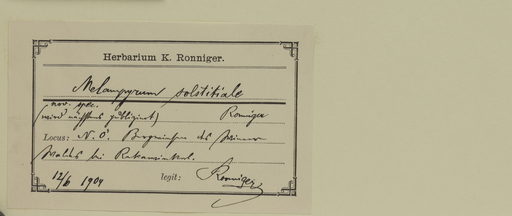 Herbarium K. Ronniger.
Melampyrum solstitiale
nov. spec.
(wird nächstens publiziert) Ronniger
Locus: N. Ö. Bergwiesen des Wiener
Waldes bei Rekawinkel.
12/6 1904 legit: Ronniger